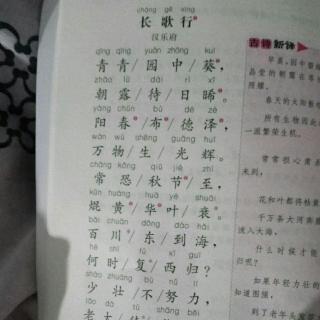 cháng gē xíng
长歌行
汉乐府
qīng qīng yuán zhōng kuí
青青/园中/葵,
zhāo lù dài rì xī
朝露/待/日晞。
yáng chūn bù dé zé
阳春/布/德泽,
wàn wù shēng guāng huī
万物/生/光辉。
cháng kǒng qiū jié zhì
常恐/秋节/至,
kūn huáng huā yè shuāi
焜黄/华叶/衰。
bǎi chuān dōng dào hǎi
百川/东/到海,
hé shí fù xī guī
何时/复/西归?
shào zhuàng bù nǔ lì
少壮/不/努力,
lǎo dà tú
老大/
古诗新译
早晨,园中
晶莹的朝露在等
照耀。
春天的太阳
所有生物因此
一派繁荣生机。
常常担心
未到,
花和叶都将枯
千万条大河奔
流入大海,
什么时候才能
归呢?
如果年轻力壮的
知道图强,
到了老年头发